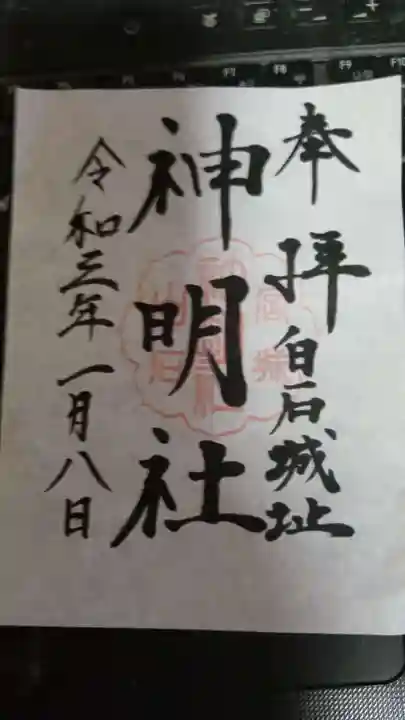 奉拝 白石城址
神明社
令和三年一月八日
F7
F8
F9
F10